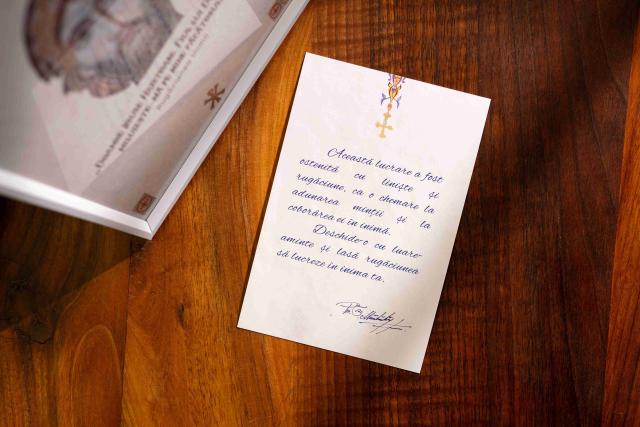 „Doamne Iisuse Hristoase, Fiul lui
miluiește-mă pe mine păcătosul
Această lucrare a fost
ostenită cu liniște și
rugăciune, ca o chemare la
adunarea minții și la
coborârea ei în inimă.
Deschide-o cu luare-
aminte și lasă rugăciunea
să lucreze în inima ta.